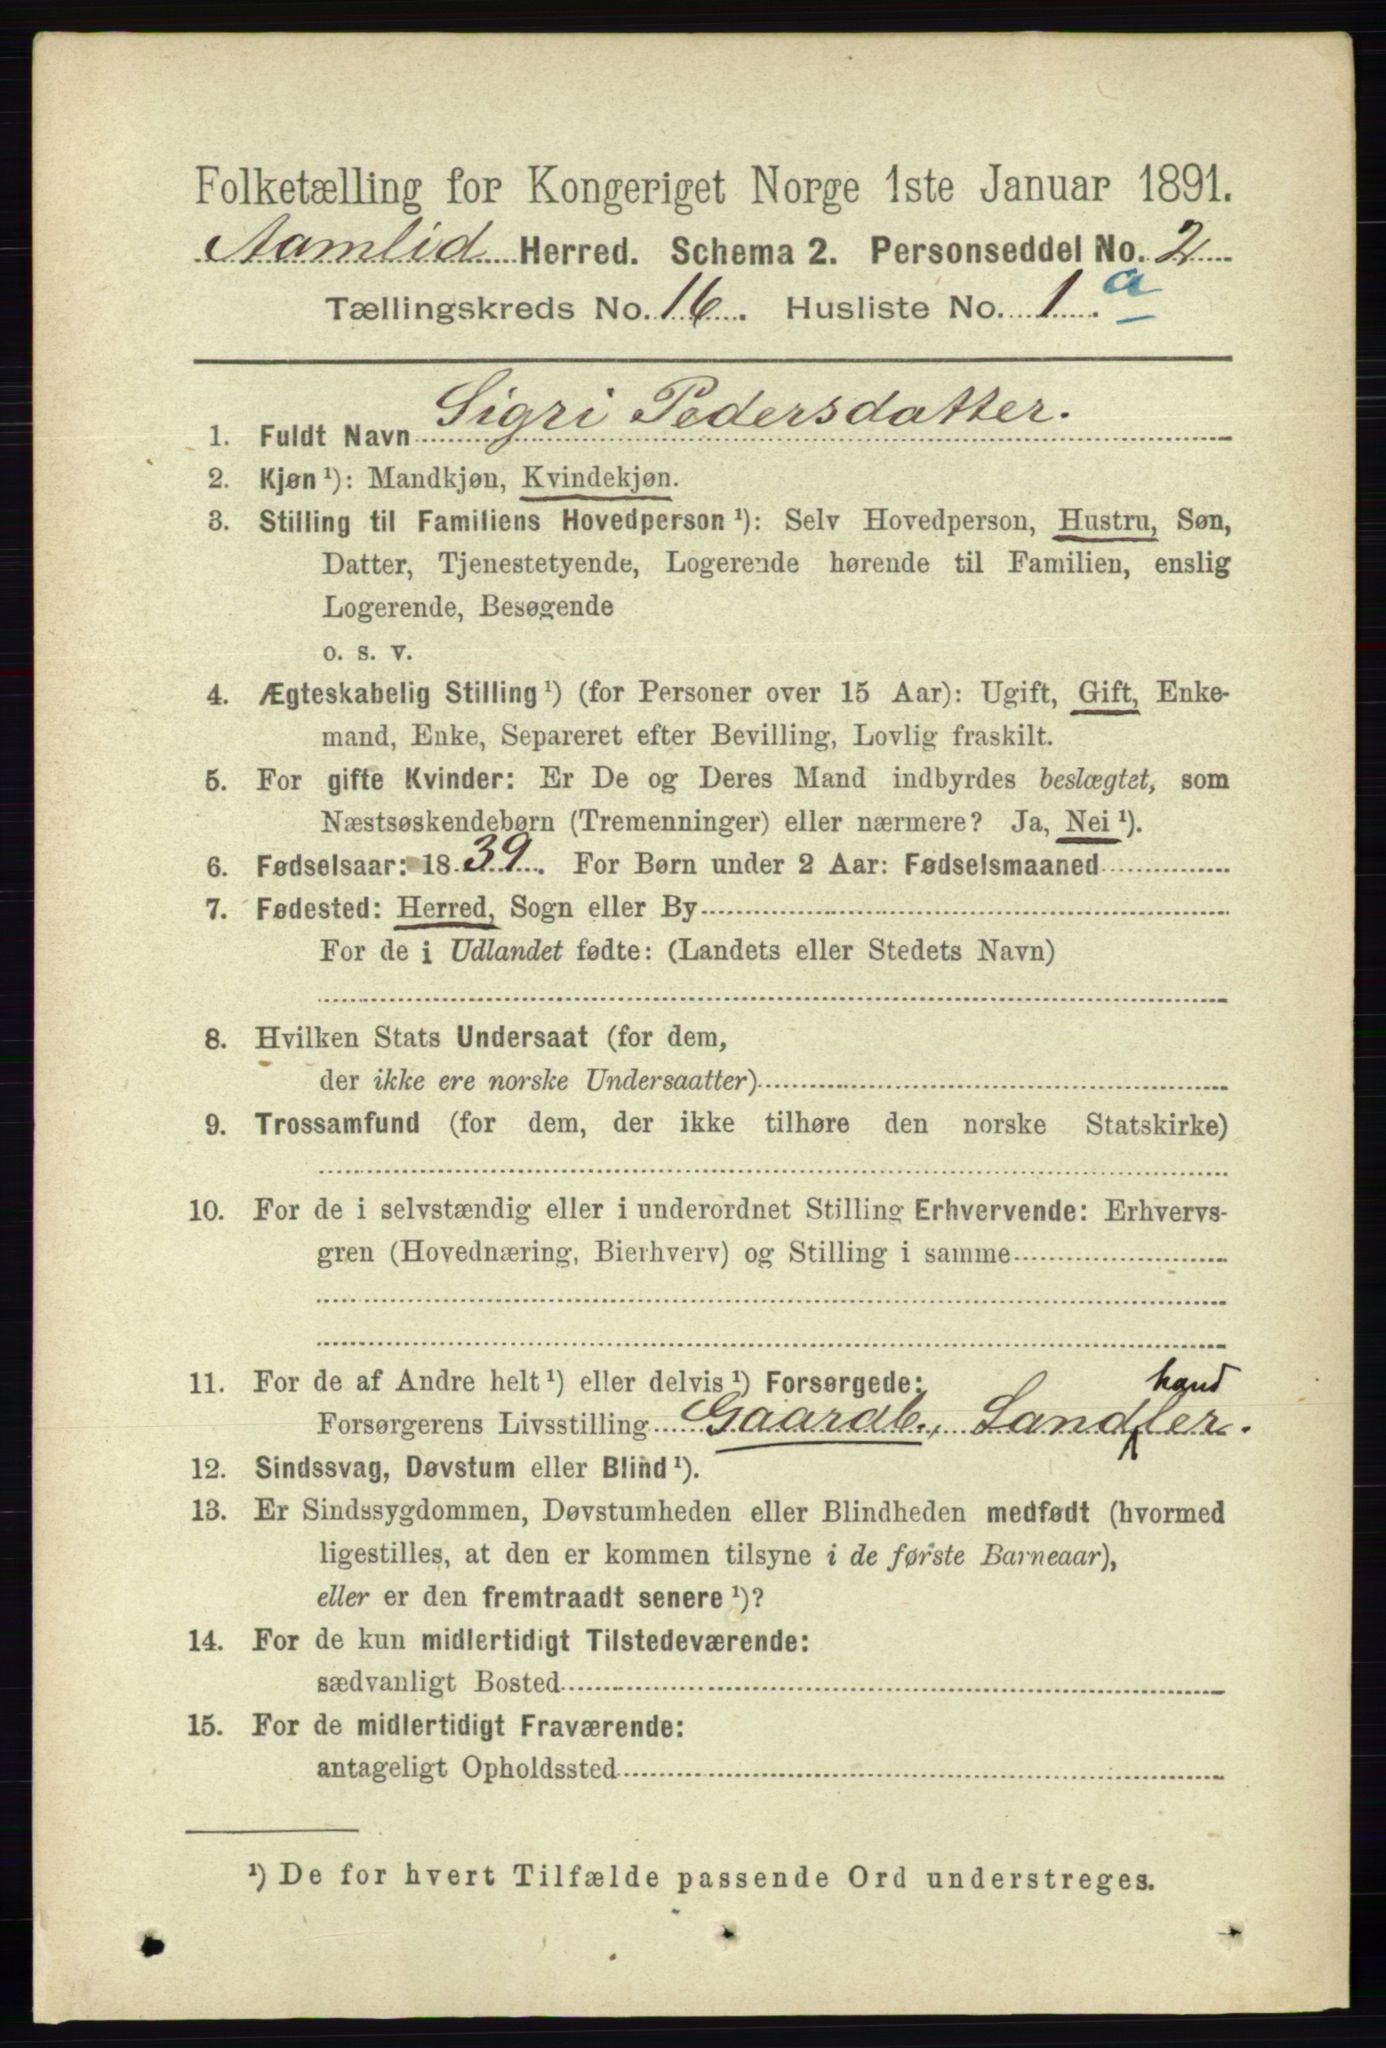 Folketælling for Kongeriget Norge 1ste Januar 1891.
Aamlid Herred. Schema 2. Personseddel No. 2
Tællingskreds No. 16. Husliste No. 1. a
1. Fuldt Navn Sigri Pedersdatter.
2. Kjøn ¹): Mandkjøn, Kvindekjøn.
3. Stilling til Familiens Hovedperson ¹): Selv Hovedperson, Hustru, Søn,
Datter, Tjenestetyende, Logerende hørende til Familien, enslig
Logerende, Besøgende
o. s. v.
4. Ægteskabelig Stilling ¹) (for Personer over 15 Aar): Ugift, Gift, Enke-
mand, Enke, Separeret efter Bevilling, Lovlig fraskilt.
5. For gifte Kvinder: Er De og Deres Mand indbyrdes beslægtet, som
Næstsøskendebørn (Tremenninger) eller nærmere? Ja, Nei ¹).
6. Fødselsaar: 1839. For Børn under 2 Aar: Fødselsmaaned
7. Fødested: Herred, Sogn eller By
For de i Udlandet fødte: (Landets eller Stedets Navn)
8. Hvilken Stats Undersaat (for dem,
der ikke ere norske Undersaatter)
9. Trossamfund (for dem, der ikke tilhøre den norske Statskirke)
10. For de i selvstændig eller i underordnet Stilling Erhvervende: Erhvervs-
gren (Hovednæring, Bierhverv) og Stilling i samme
11. For de af Andre helt ¹) eller delvis ¹) Forsørgede:
hand
Forsørgerens Livsstilling Gaardb., Landler.
12. Sindssvag, Døvstum eller Blind ¹).
13. Er Sindssygdommen, Døvstumheden eller Blindheden medfødt (hvormed
ligestilles, at den er kommen tilsyne i de første Barneaar),
eller er den fremtraadt senere ¹)?
14. For de kun midlertidigt Tilstedeværende:
sædvanligt Bosted
15. For de midlertidigt Fraværende:
antageligt Opholdssted
¹) De for hvert Tilfælde passende Ord understreges.